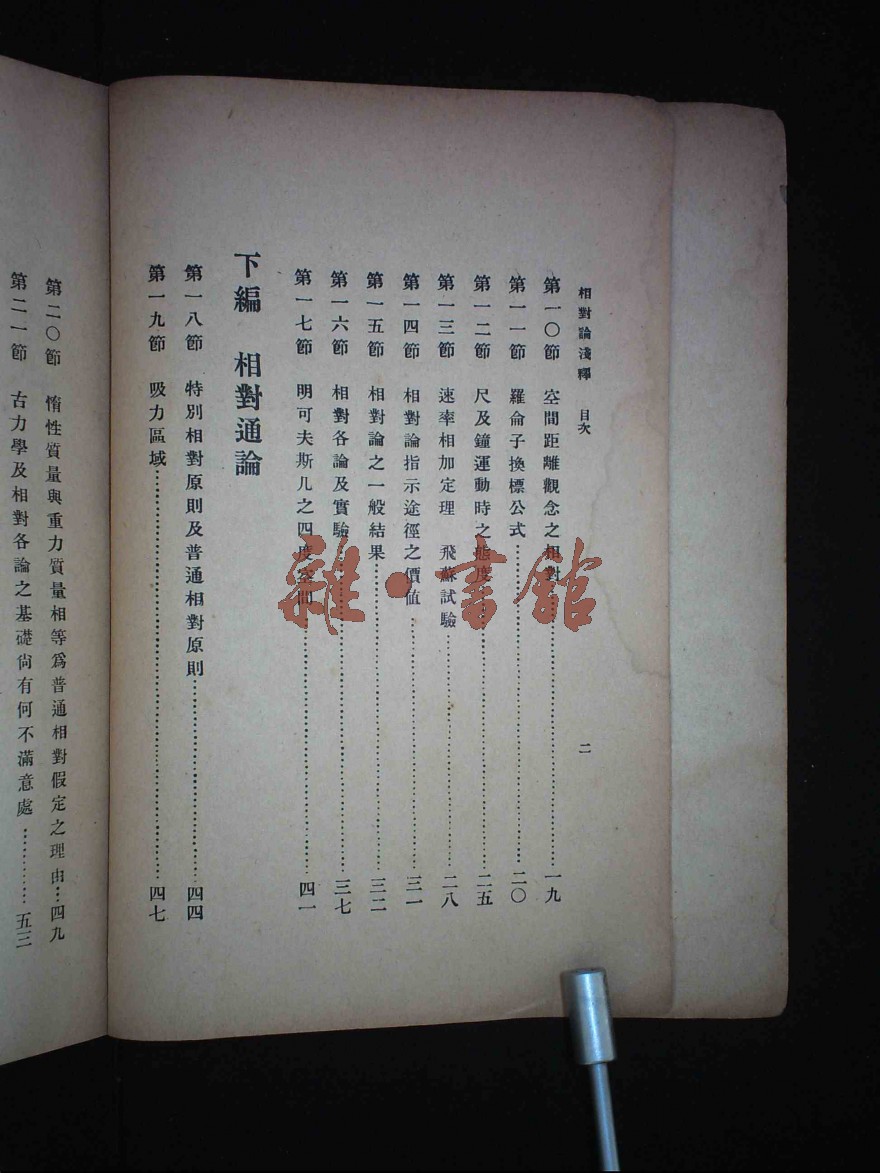 相對論淺釋 目次 二
第一〇節 空間距離觀念之相對…………一九
第一一節 羅侖子換標公式…………二〇
第一二節 尺及鐘運動時之態度…………二五
第一三節 速率相加定理 飛蘇試驗…………二八
第一四節 相對論指示途徑之價值…………三一
第一五節 相對論之一般結果…………三二
第一六節 相對各論及實驗…………三七
第一七節 明可夫斯几之四度空間…………四一
下編 相對通論
第一八節 特別相對原則及普通相對原則…………四四
第一九節 吸力區域…………四七
第二〇節 惰性質量與重力質量相等爲普通相對假定之理由…四九
第二一節 古力學及相對各論之基礎尙有何不滿意處…………五三
雜·書館